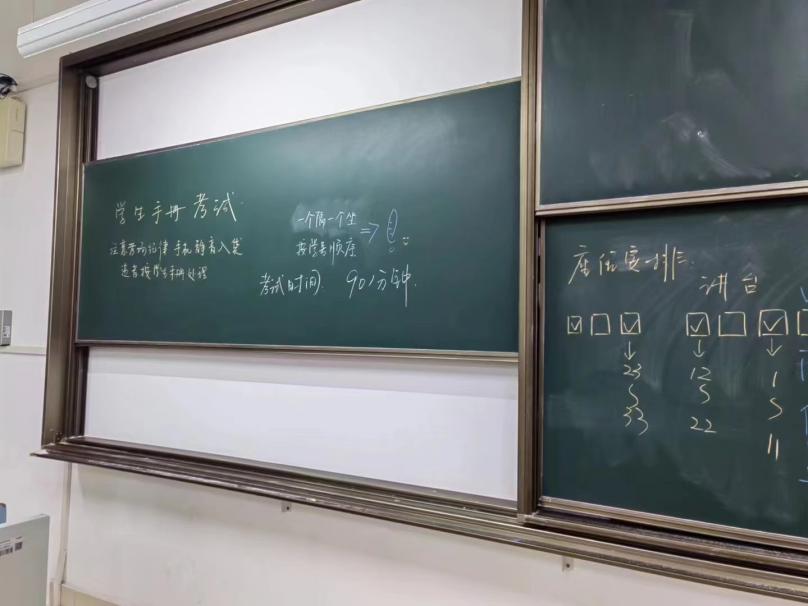 学生手册考试
注意考场纪律 手机静音入袋
违者按学生手册处理
一个隔一个坐
按学号顺座
=>
考试时间: 90分钟.
座位安排:
讲台
23 12 1
33 22 11